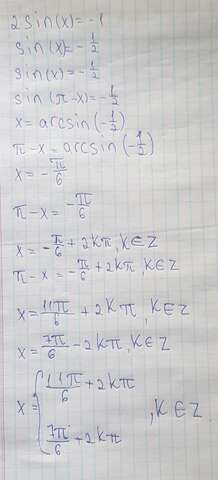 2 sin(x) = -1
sin(x) = -1/2
sin(x) = -1/2
sin(π-x) = -1/2
x = arcsin(-1/2)
π-x = arcsin(-1/2)
x = -π/6
π-x = -π/6
x = -π/6 + 2kπ, k∈Z
π-x = -π/6 + 2kπ, k∈Z
x = 11π/6 + 2kπ, k∈Z
x = 7π/6 - 2kπ, k∈Z
x = { 11π/6 + 2kπ
, k∈Z
7π/6 + 2kπ